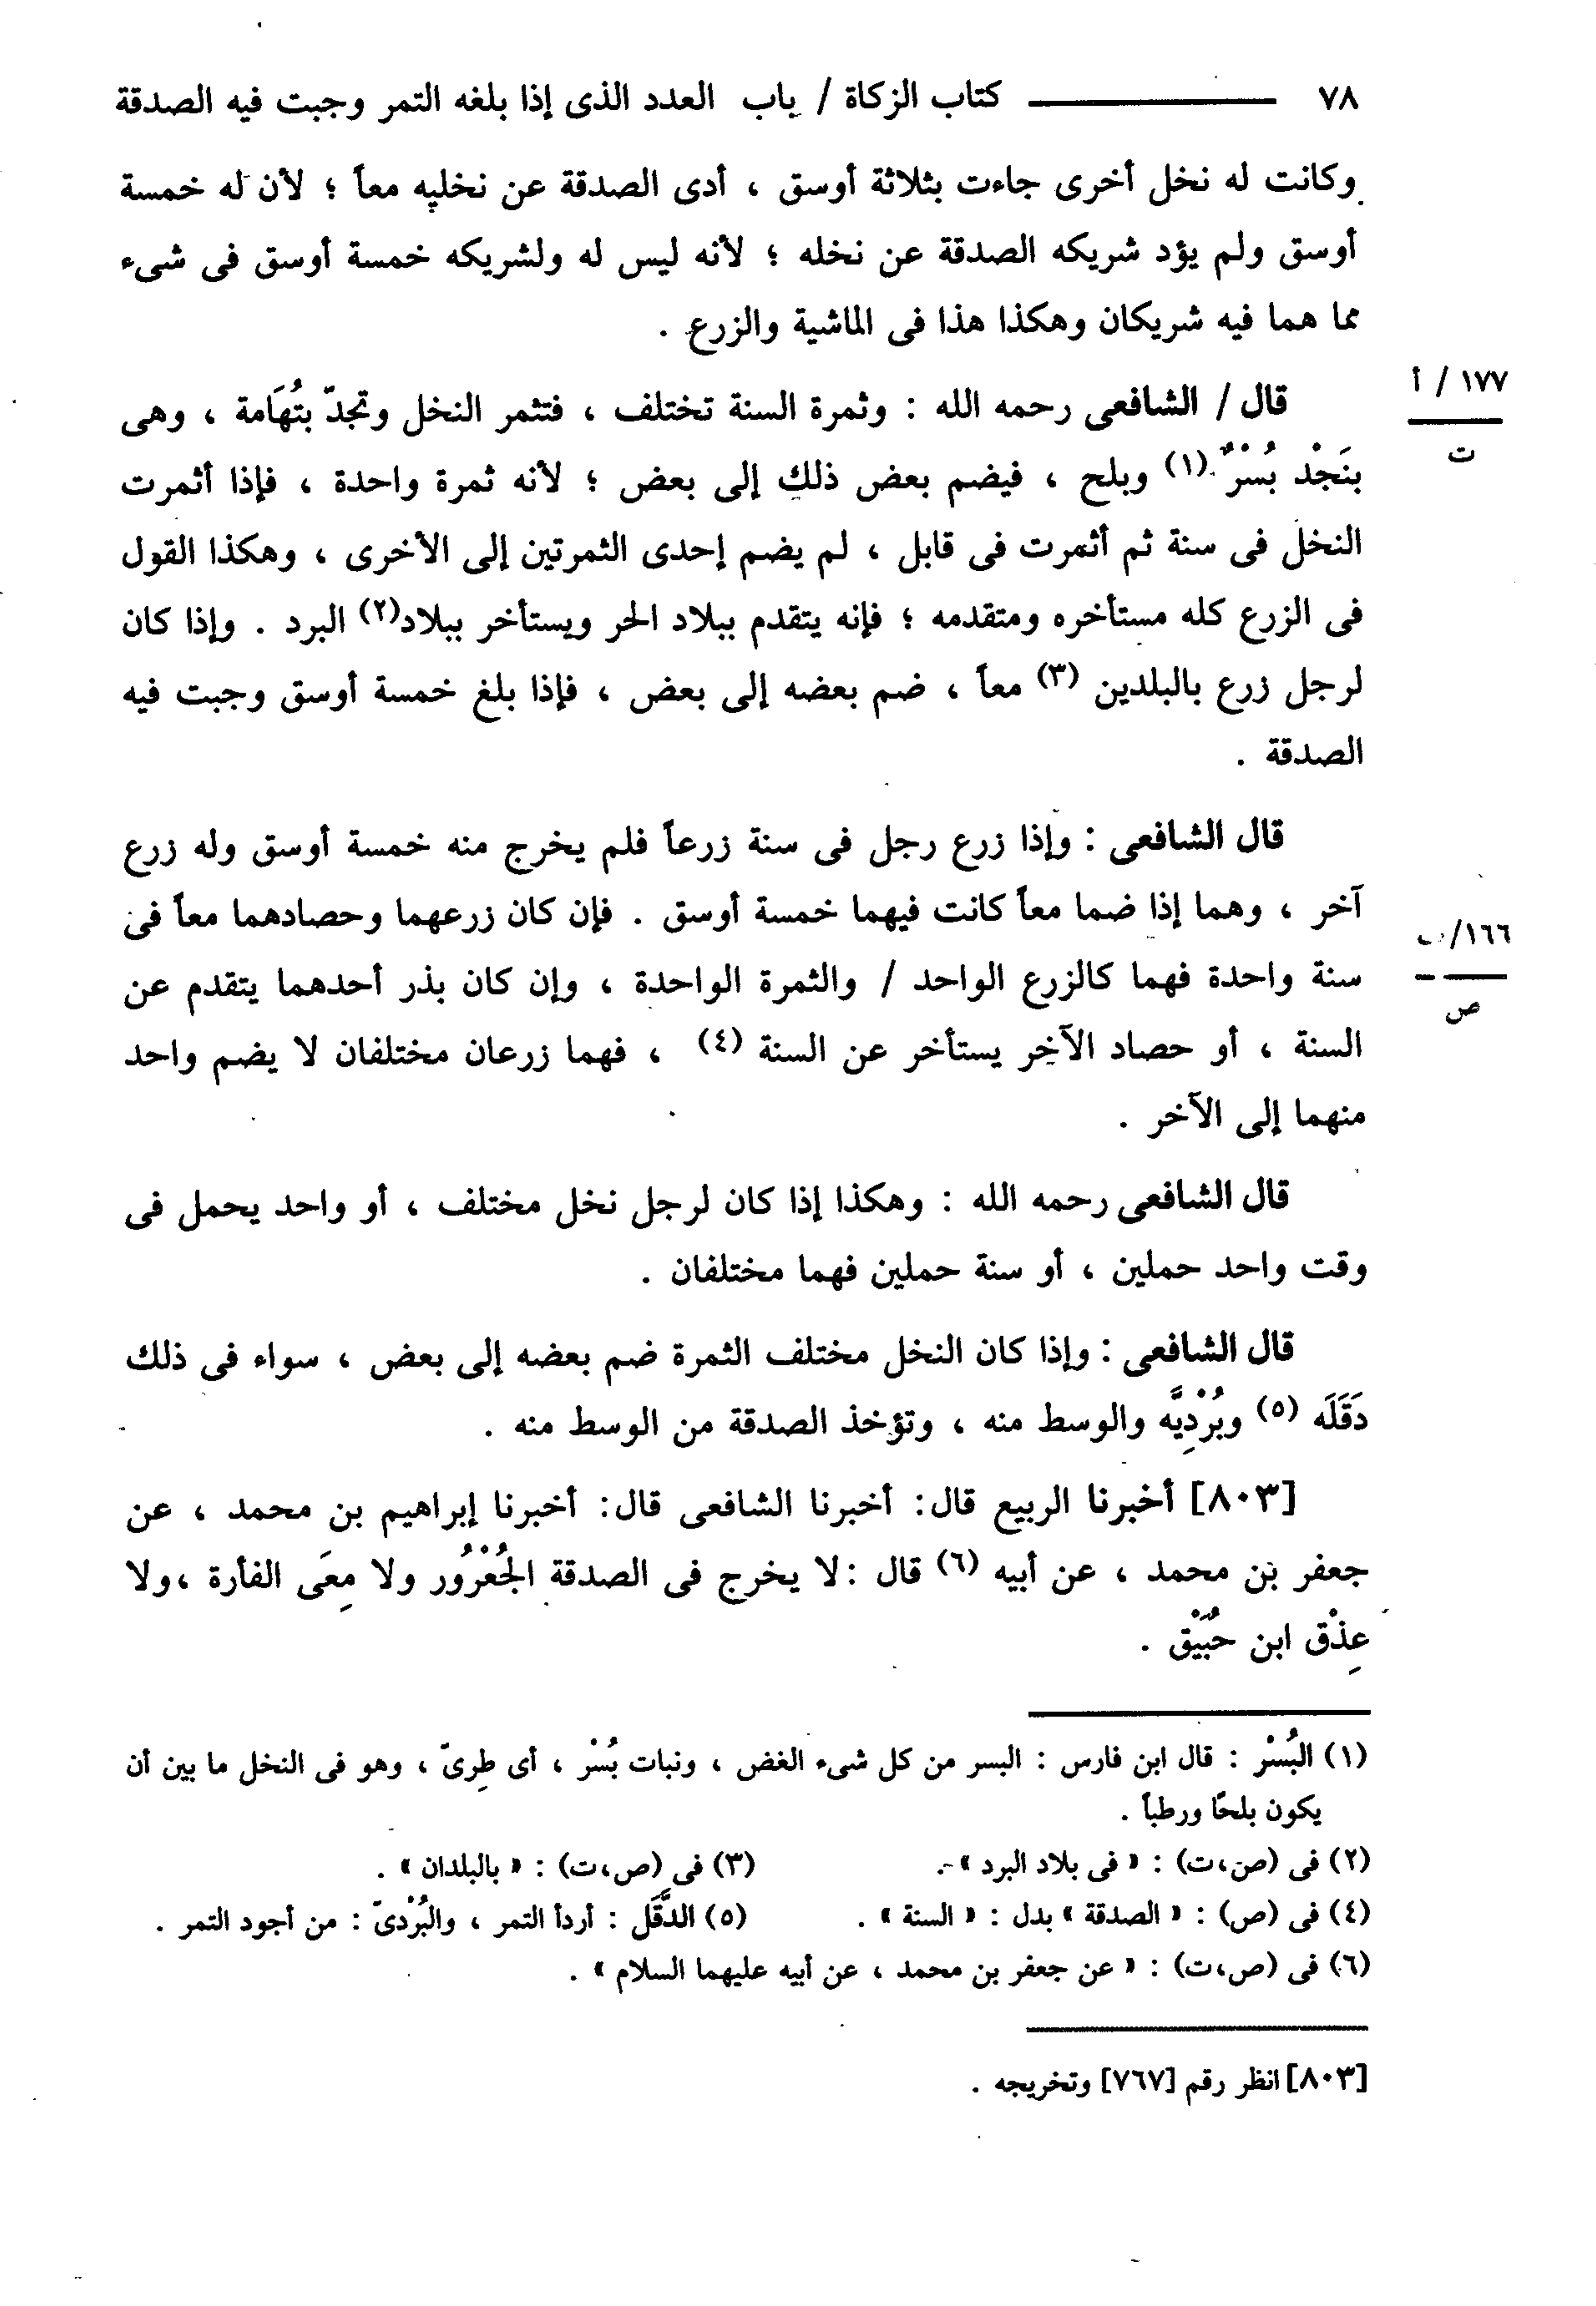 ٧٨ ــــــــــ كتاب الزكاة / باب العدد الذى إذا بلغه التمر وجبت فيه الصدقة
وكانت له نخل أخرى جاءت بثلاثة أوسق ، أدى الصدقة عن نخليه معاً ؛ لأن له خمسة
أوسق ولم يؤد شريكه الصدقة عن نخله ؛ لأنه ليس له ولشريكه خمسة أوسق فى شىء
مما هما فيه شريكان وهكذا هذا فى الماشية والزرع .
١٧٧ / أ
ت
قال / الشافعى رحمه الله : وثمرة السنة تختلف ، فتثمر النخل وتجدّ بتُهَامة ، وهى
بنَجْد بُسْرٌ (١) وبلح ، فيضم بعض ذلك إلى بعض ؛ لأنه ثمرة واحدة ، فإذا أثمرت
النخل فى سنة ثم أثمرت فى قابل ، لم يضم إحدى الثمرتين إلى الأخرى ، وهكذا القول
فى الزرع كله مستأخره ومتقدمه ؛ فإنه يتقدم ببلاد الحر ويستأخر ببلاد(٢) البرد . وإذا كان
لرجل زرع بالبلدين (٣) معاً ، ضم بعضه إلى بعض ، فإذا بلغ خمسة أوسق وجبت فيه
الصدقة .
قال الشافعى : وإذا زرع رجل فى سنة زرعاً فلم يخرج منه خمسة أوسق وله زرع
آخر ، وهما إذا ضما معاً كانت فيهما خمسة أوسق . فإن كان زرعهما وحصادهما معاً فى
١٦٦/ب
ص
سنة واحدة فهما كالزرع الواحد / والثمرة الواحدة ، وإن كان بذر أحدهما يتقدم عن
السنة ، أو حصاد الآخِر يستأخر عن السنة (٤) ، فهما زرعان مختلفان لا يضم واحد
منهما إلى الآخر .
قال الشافعى رحمه الله : وهكذا إذا كان لرجل نخل مختلف ، أو واحد يحمل فى
وقت واحد حملين ، أو سنة حملين فهما مختلفان .
قال الشافعى : وإذا كان النخل مختلف الثمرة ضم بعضه إلى بعض ، سواء فى ذلك
دَقَلَه (٥) وبُرْدِيَّه والوسط منه ، وتؤخذ الصدقة من الوسط منه .
[٨٠٣] أخبرنا الربيع قال: أخبرنا الشافعى قال: أخبرنا إبراهيم بن محمد ، عن
جعفر بن محمد ، عن أبيه (٦) قال :لا يخرج فى الصدقة الجُعْرُور ولا مِعَى الفأرة ،ولا
عِذْق ابن حُبَيْق .
(١) البُسْر : قال ابن فارس : البسر من كل شىء الغض ، ونبات بُسْر ، أى طِرىّ ، وهو فى النخل ما بين أن
يكون بلحًا ورطباً .
(٢) فى (ص،ت) : « فى بلاد البرد » . (٣) فى (ص،ت) : « بالبلدان » .
(٤) فى (ص) : « الصدقة » بدل : « السنة » . (٥) الدَّقَل : أردأ التمر ، والبُرْدىّ : من أجود التمر .
(٦) فى (ص،ت) : « عن جعفر بن محمد ، عن أبيه عليهما السلام » .
[٨٠٣] انظر رقم [٧٦٧] وتخريجه .